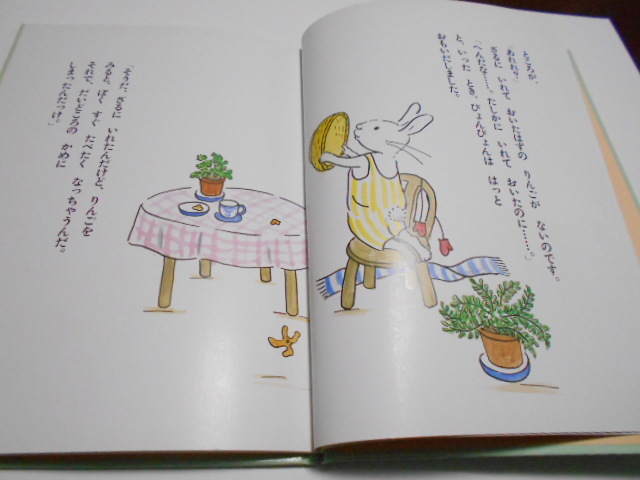 ところが、
「あれれ？」
ざるに いれて おいたはずの りんごが ないのです。
「へんだな……。たしかに いれて おいたのに……。」
と、いった とき、ぴょんぴょんは はっと
おもいだしました。
「そうだ、ざるに いれたんだけど、りんごを
みると、ぼく すぐ たべたく なっちゃうんだ。
それで、だいどころの かめに
しまったんだっけ。」